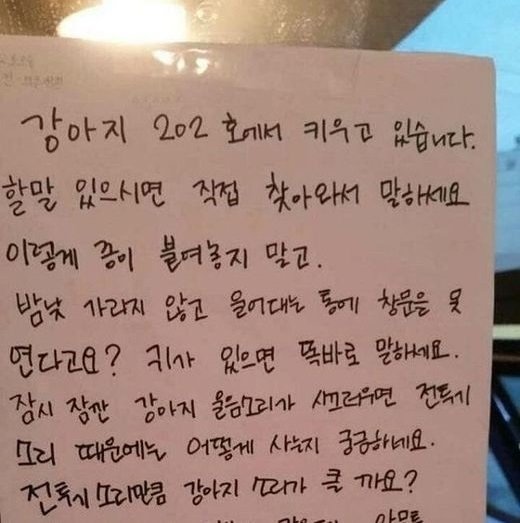 강아지 202호에서 키우고 있습니다.
할말 있으시면 직접 찾아와서 말하세요
이렇게 종이 붙여놓지 말고.
밤낮 가리지 않고 울어대는 통에 창문을 못
연다고요? 귀가 있으면 똑바로 말하세요.
잠시 잠깐 강아지 울음소리가 시끄러우면 전투기
소리 때문에는 어떻게 사는지 궁금하네요.
전투기 소리만큼 강아지 소리가 클 까요?